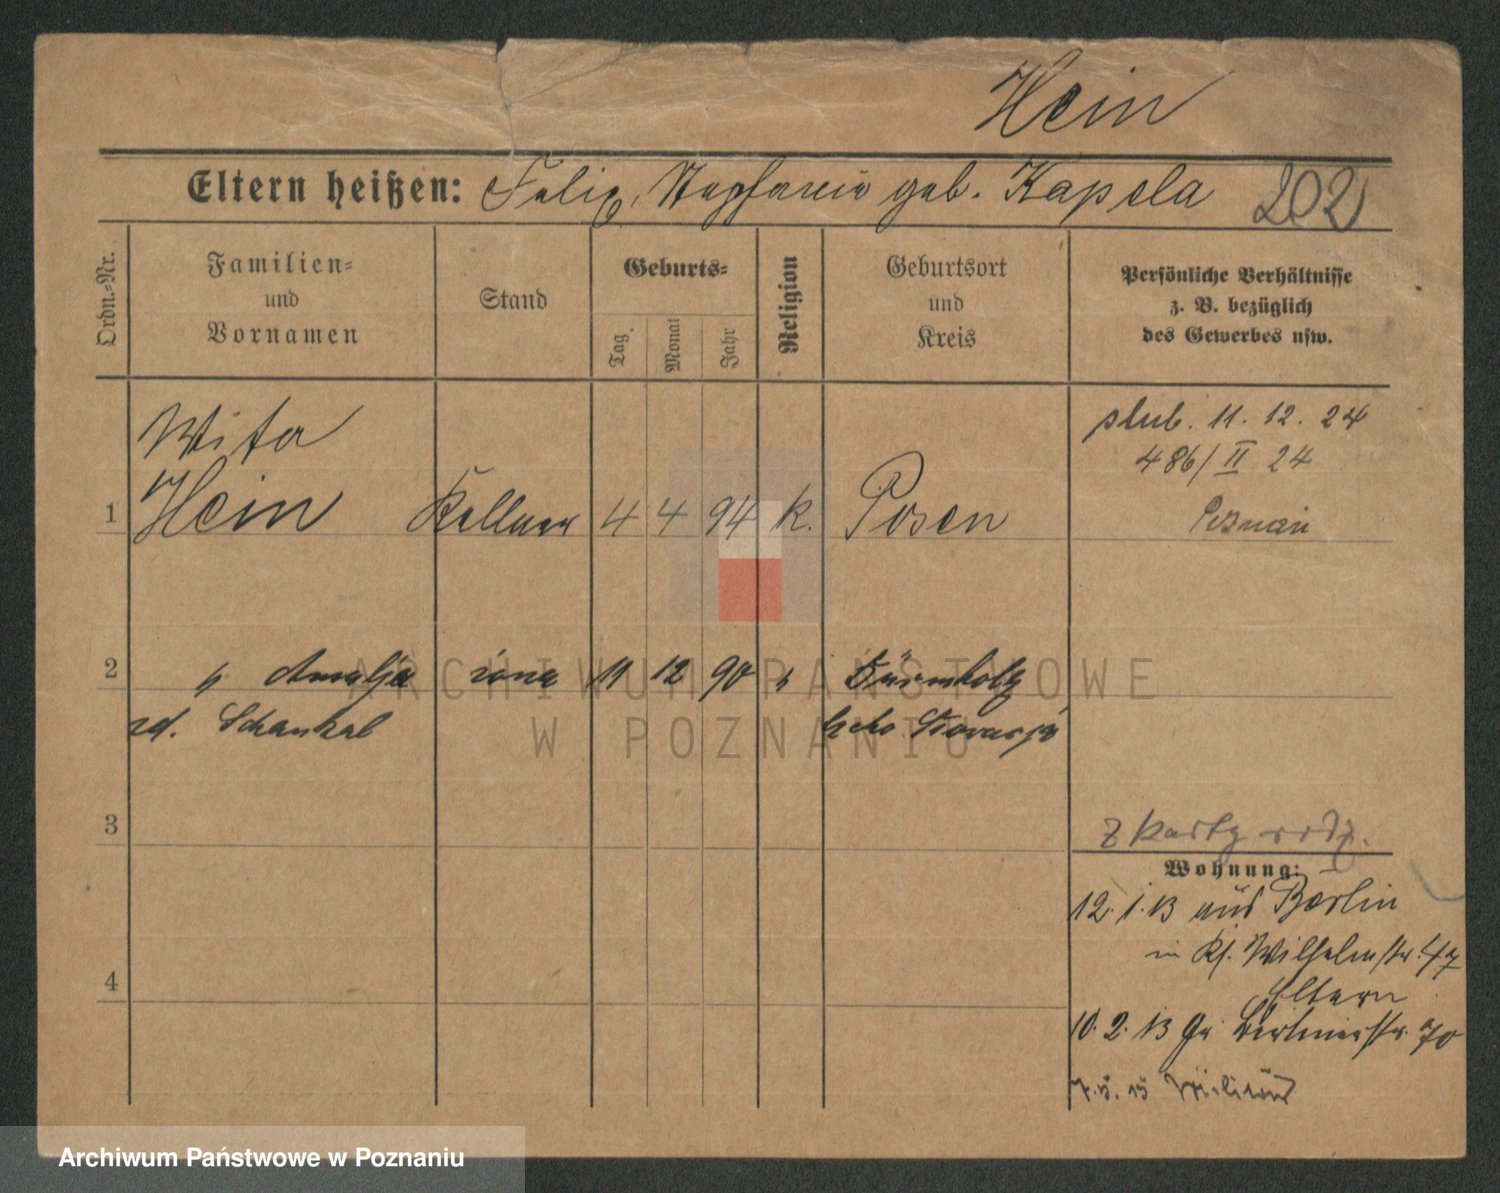 Hein
Eltern heißen: Felix, Stephanie geb. Kapsla 202
Ordn.-Nr.
Familien-
und
Vornamen
Stand
Geburts-
Tag
Monat
Jahr
Religion
Geburtsort
und
Kreis
Persönliche Verhältnisse
z. B. bezüglich
des Gewerbes usw.
ślub. 11. 12. 24
486/II 24
Poznań
Wita
1 Hein Kellner 4 4 94 k. Posen
2 " Amalja żona 11 12 90 "
zd. Schankal
3
4
z karty rodz.
Wohnung:
12. 1. 13 aus Berlin
in Kf. Wilhelmstr. 47
Eltern
10. 2. 13 Gr. Berlinerstr. 70
7. 5. 15 Militär
ARCHIWUM PAŃSTWOWE
W POZNANIU
Archiwum Państwowe w Poznaniu